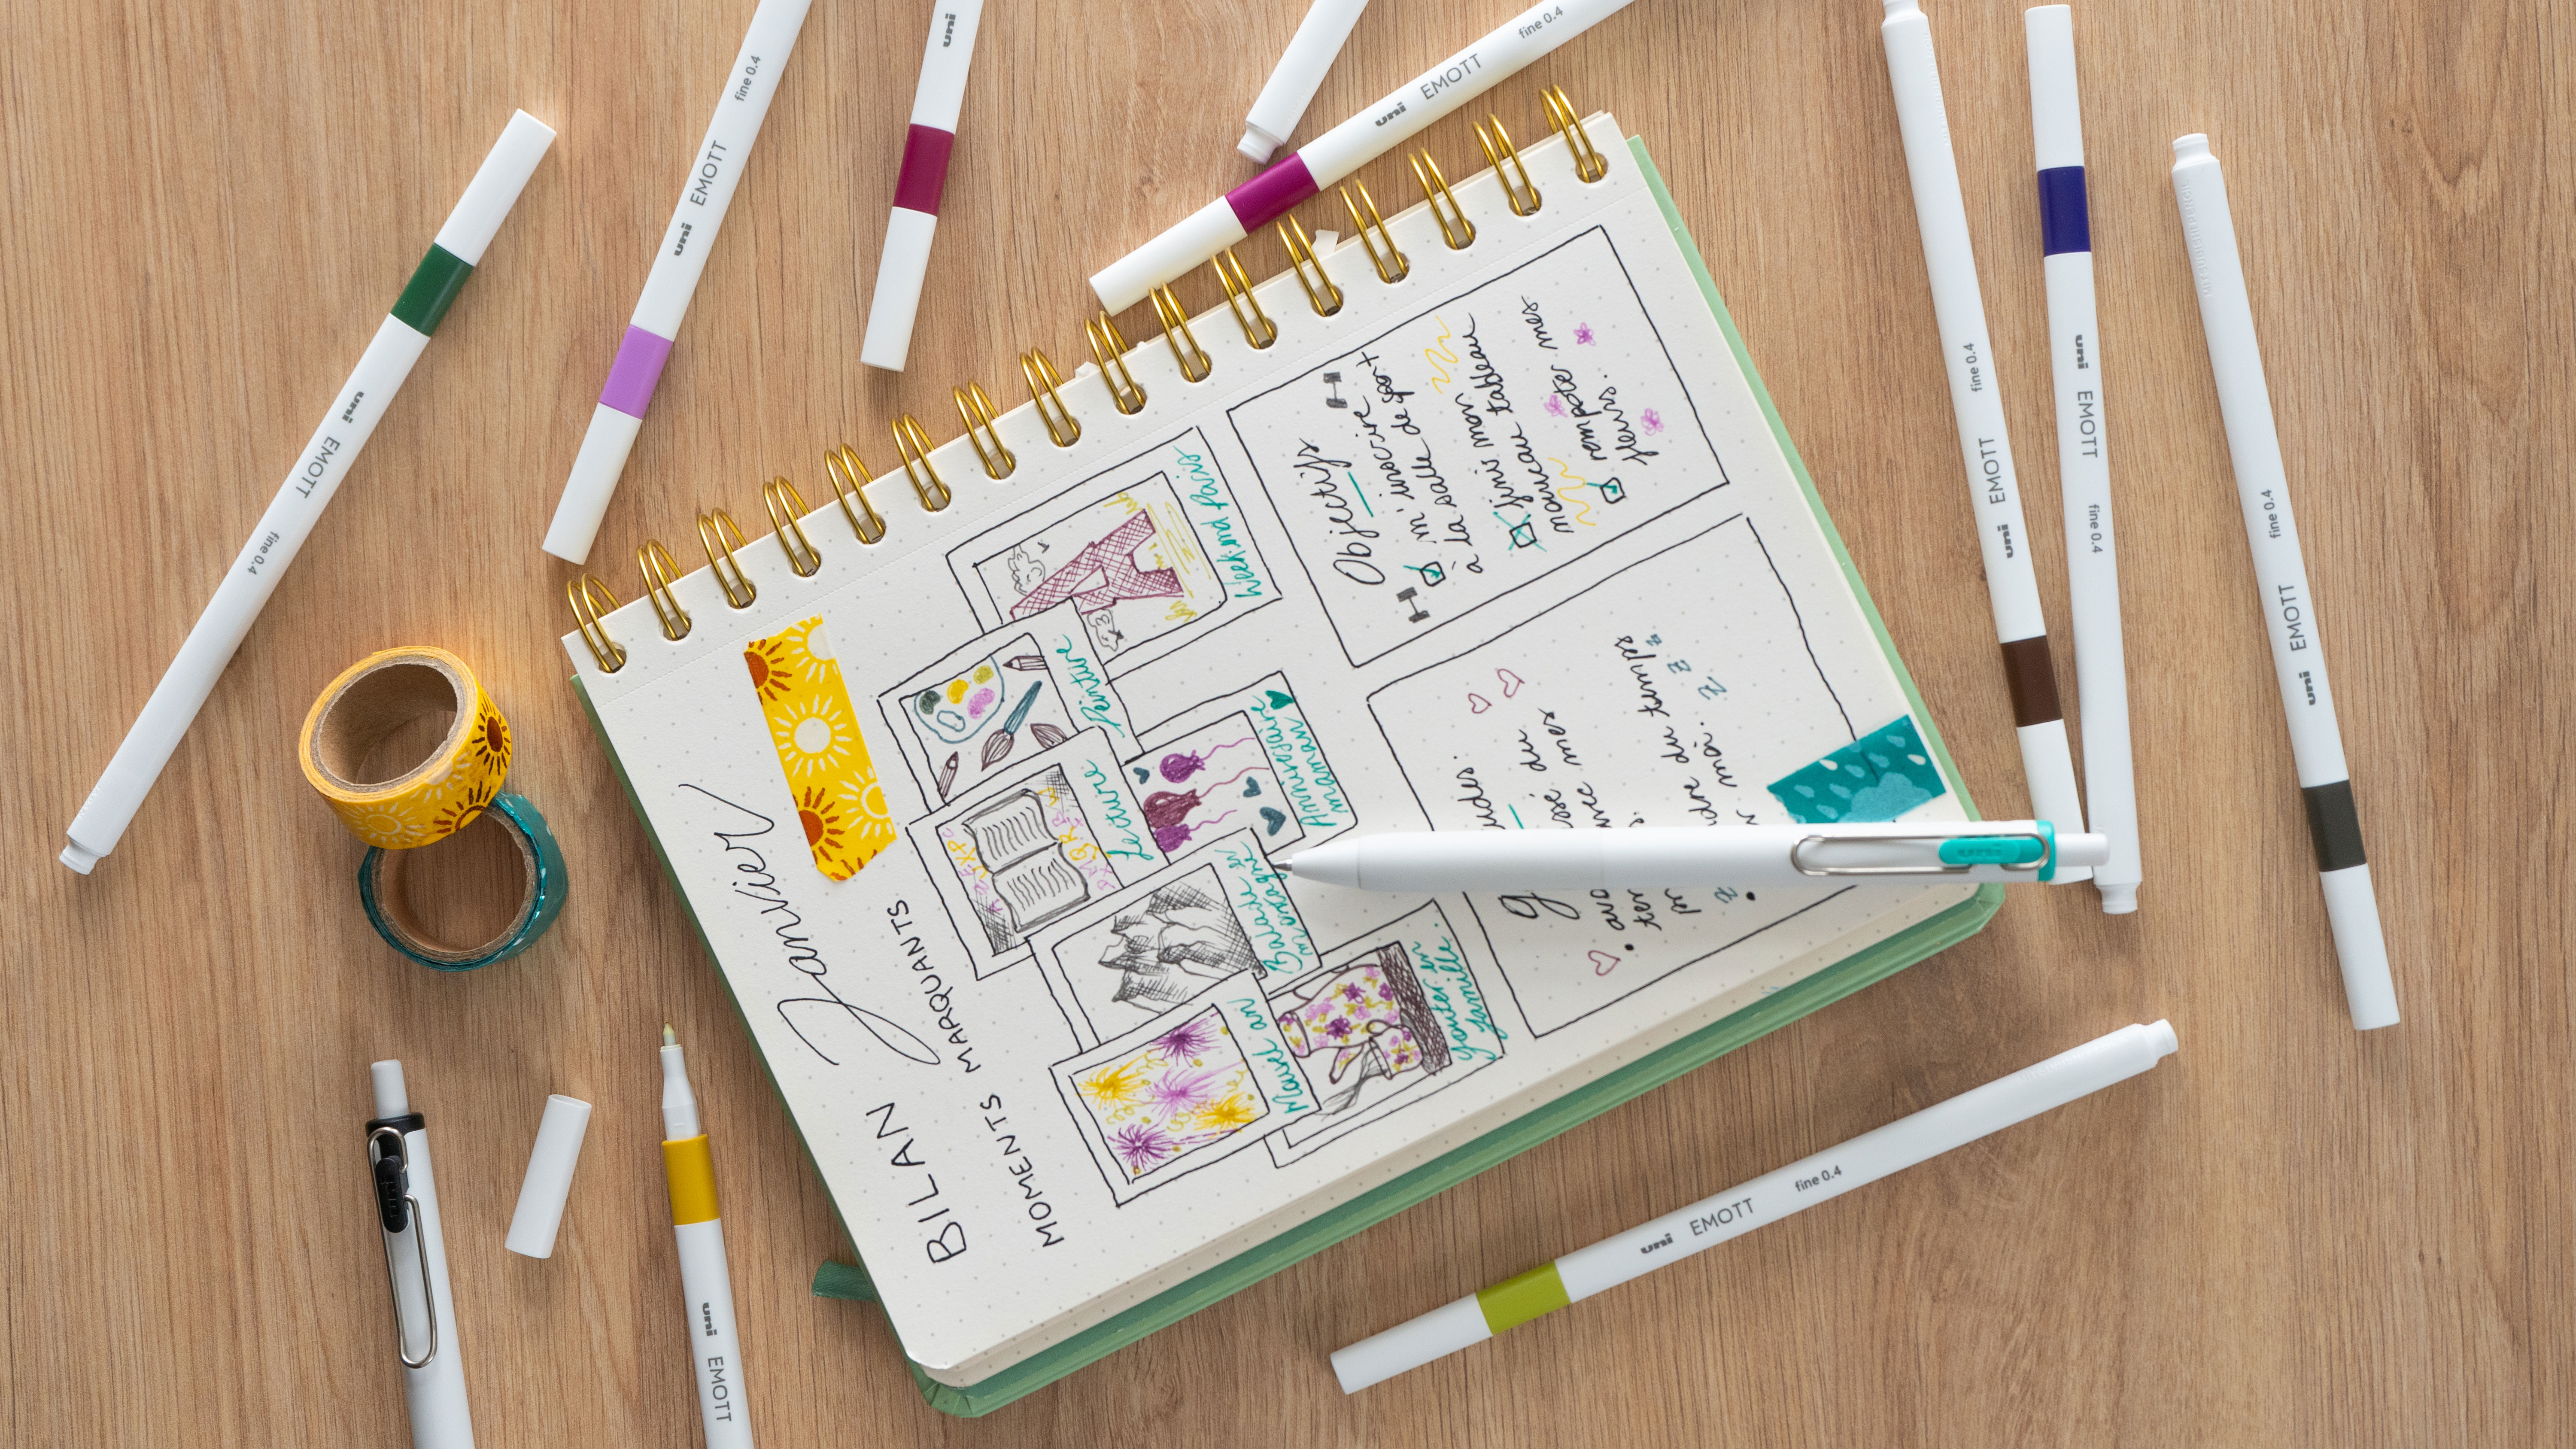 BILAN Janvier
MOMENTS MARQUANTS
Nouvel an
Balade en
montagne
Lecture
Peinture
Weekend Paris
Gouter en
famille.
Anniversaire
maman
Objectifs
m'inscrire
à la salle de sport
finir mon
nouveau tableau
rempoter mes
fleurs.
du
mes
du temps
moi. z z z
uni EMOTT fine 0.4
uni EMOTT fine 0.4
uni
uni EMOTT fine 0.4
uni EMOTT fine 0.4
uni EMOTT fine 0.4
uni EMOTT fine 0.4
uni EMOTT fine 0.4
uni EMOTT
uni
uni